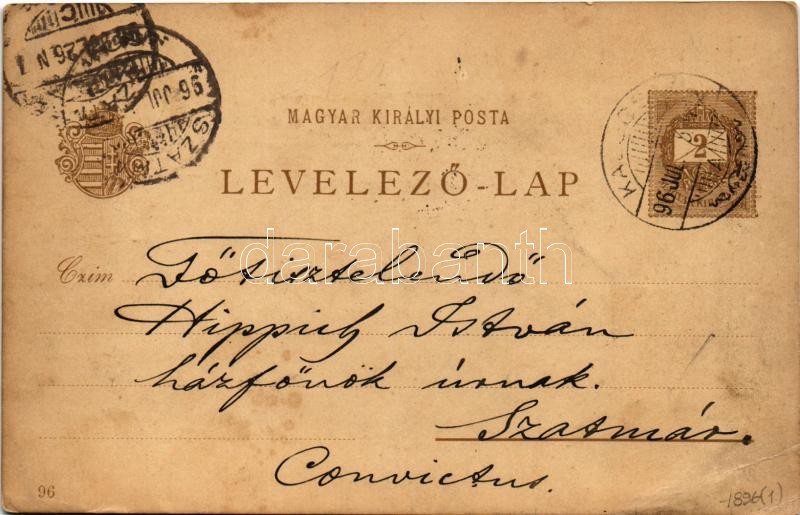 MAGYAR KIRÁLYI POSTA
LEVELEZŐ-LAP
2
Czim Főtisztelendő
Hippich István
házfőnök úrnak.
Szatmár.
Convictus.
96
1896(1)
darabanth